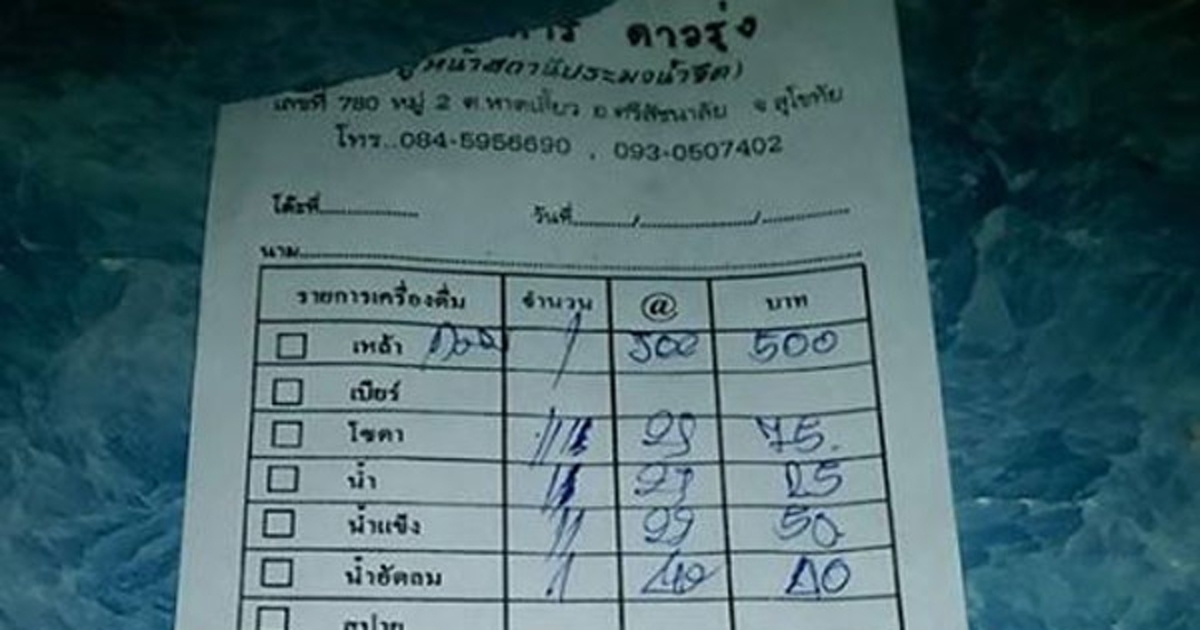 การ ดาวรุ่ง
หน้าสถานีประมงน้ำจืด)
เลขที่ 780 หมู่ 2 ต.หาดเสี้ยว อ.ศรีสัชนาลัย จ.สุโขทัย
โทร..084-5956690 , 093-0507402
โต๊ะที่.................. วันที่............/......................../.................
นาม..................................................
รายการเครื่องดื่ม จำนวน @ บาท
เหล้า 500 500
เบียร์
โซดา 25 75.
น้ำ 25 25
น้ำแข็ง 25 50
น้ำอัดลม 40 40
สปาย